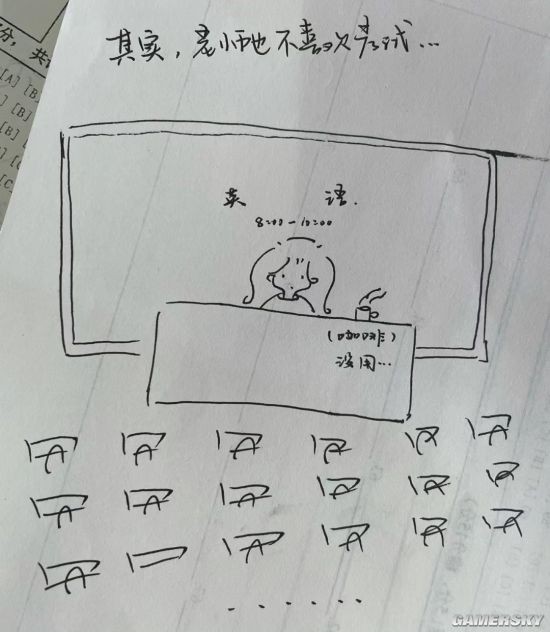 其实，老师也不喜欢考试…
英 语.
8:00-10:00
(咖啡)
没用…
GAMERSKY